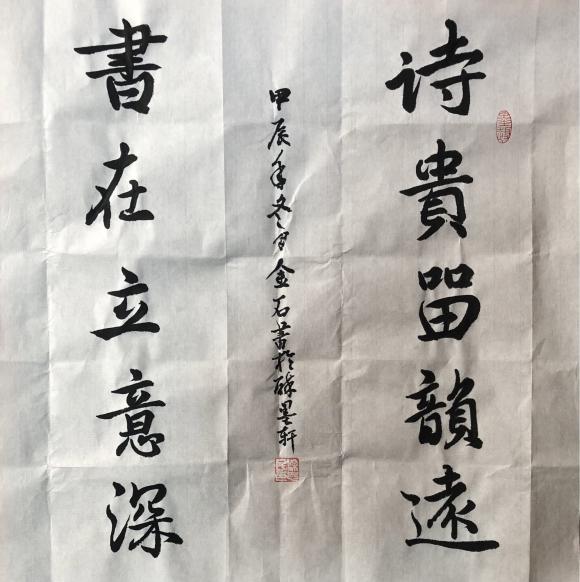 诗貴留韻遠
書在立意深
甲辰年冬月金石書於醉墨轩